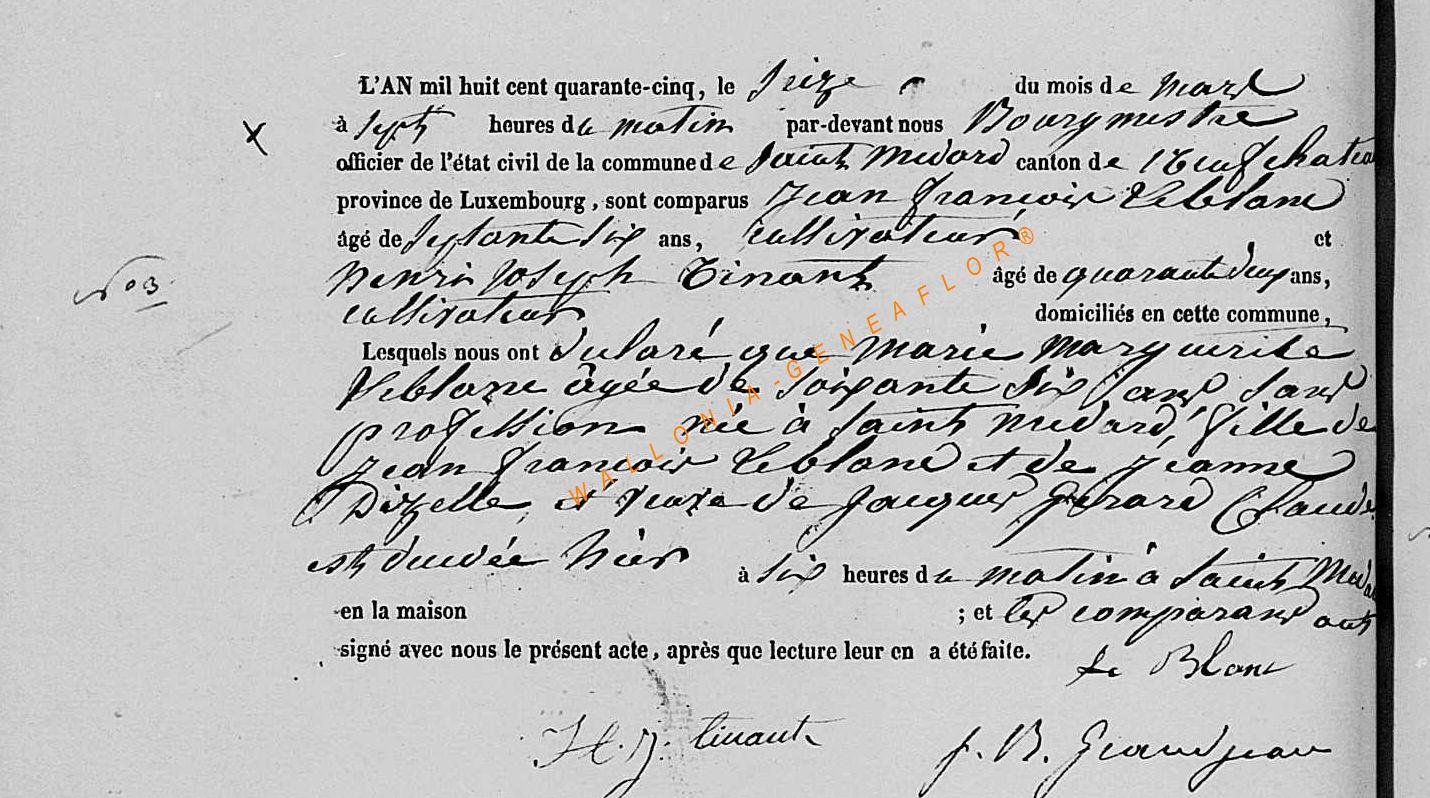 L'AN mil huit cent quarante-cinq, le seize du mois de mars
à sept heures du matin par-devant nous Bourgmestre
officier de l'état civil de la commune de Saint Medard canton de Neufchateau
province de Luxembourg, sont comparus Jean François Leblanc
âgé de septante six ans, cultivateur et
Henri Joseph Tinant âgé de quarante deux ans,
N° 3
cultivateur domiciliés en cette commune,
Lesquels nous ont déclaré que Marie Marguerite
Leblanc âgée de soixante six ans, sans
profession née à Saint Medard, fille de
Jean François Leblanc et de Jeanne
Dizelle, et veuve de Jacques Gerard Claude
est décédée hier à six heures du matin à Saint Medard
en la maison ; et les comparans ont
signé avec nous le présent acte, après que lecture leur en a été faite.
Le Blanc
H. J. tinant
J. B. Grandjean
WALLONIA-GENEAFLOR®